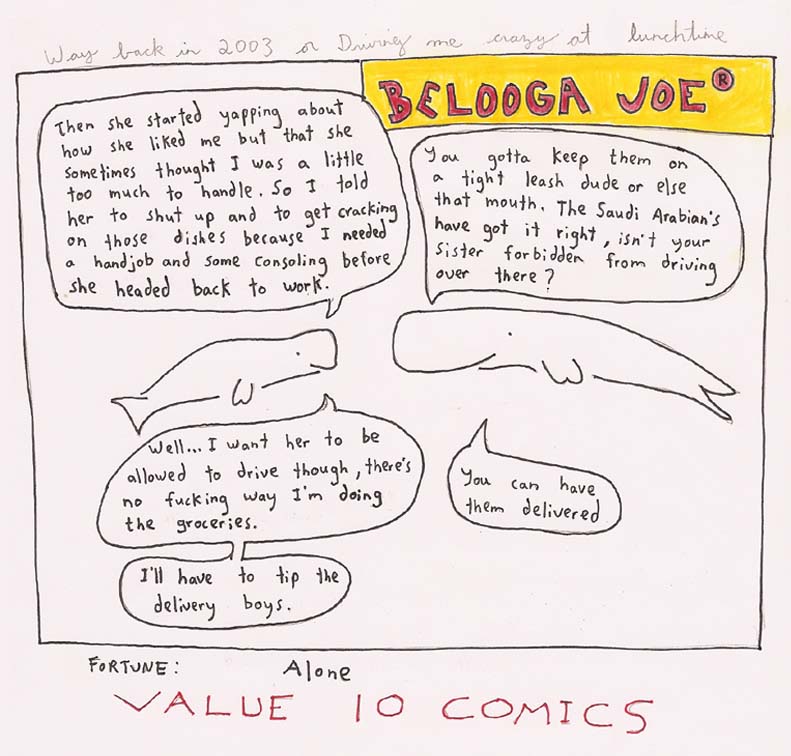 Way back in 2003 or Driving me crazy at lunchtime
BELOOGA JOE®
Then she started yapping about
how she liked me but that she
sometimes thought I was a little
too much to handle. So I told
her to shut up and to get cracking
on those dishes because I needed
a handjob and some consoling before
she headed back to work.
You gotta keep them on
a tight leash dude or else
that mouth. The Saudi Arabian's
have got it right, isn't your
sister forbidden from driving
over there?
Well... I want her to be
allowed to drive though, there's
no fucking way I'm doing
the groceries.
You can have
them delivered
I'll have to tip the
delivery boys.
FORTUNE: Alone
VALUE 10 COMICS